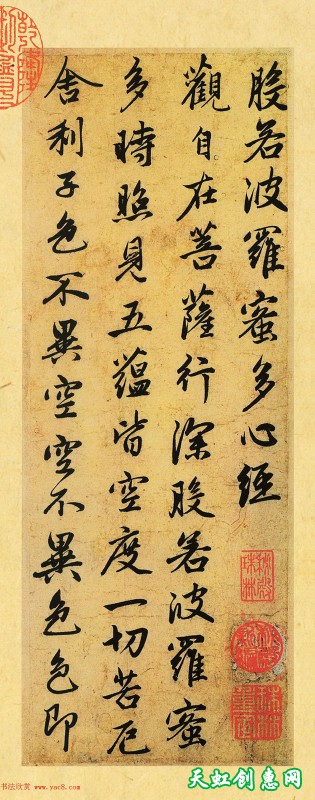 般若波羅蜜多心經
觀自在菩薩行深般若波羅蜜
多時照見五蘊皆空度一切苦厄
舍利子色不異空空不異色色即
秘殿珠林
书法欣赏 www.yac8.com
天虹创惠网